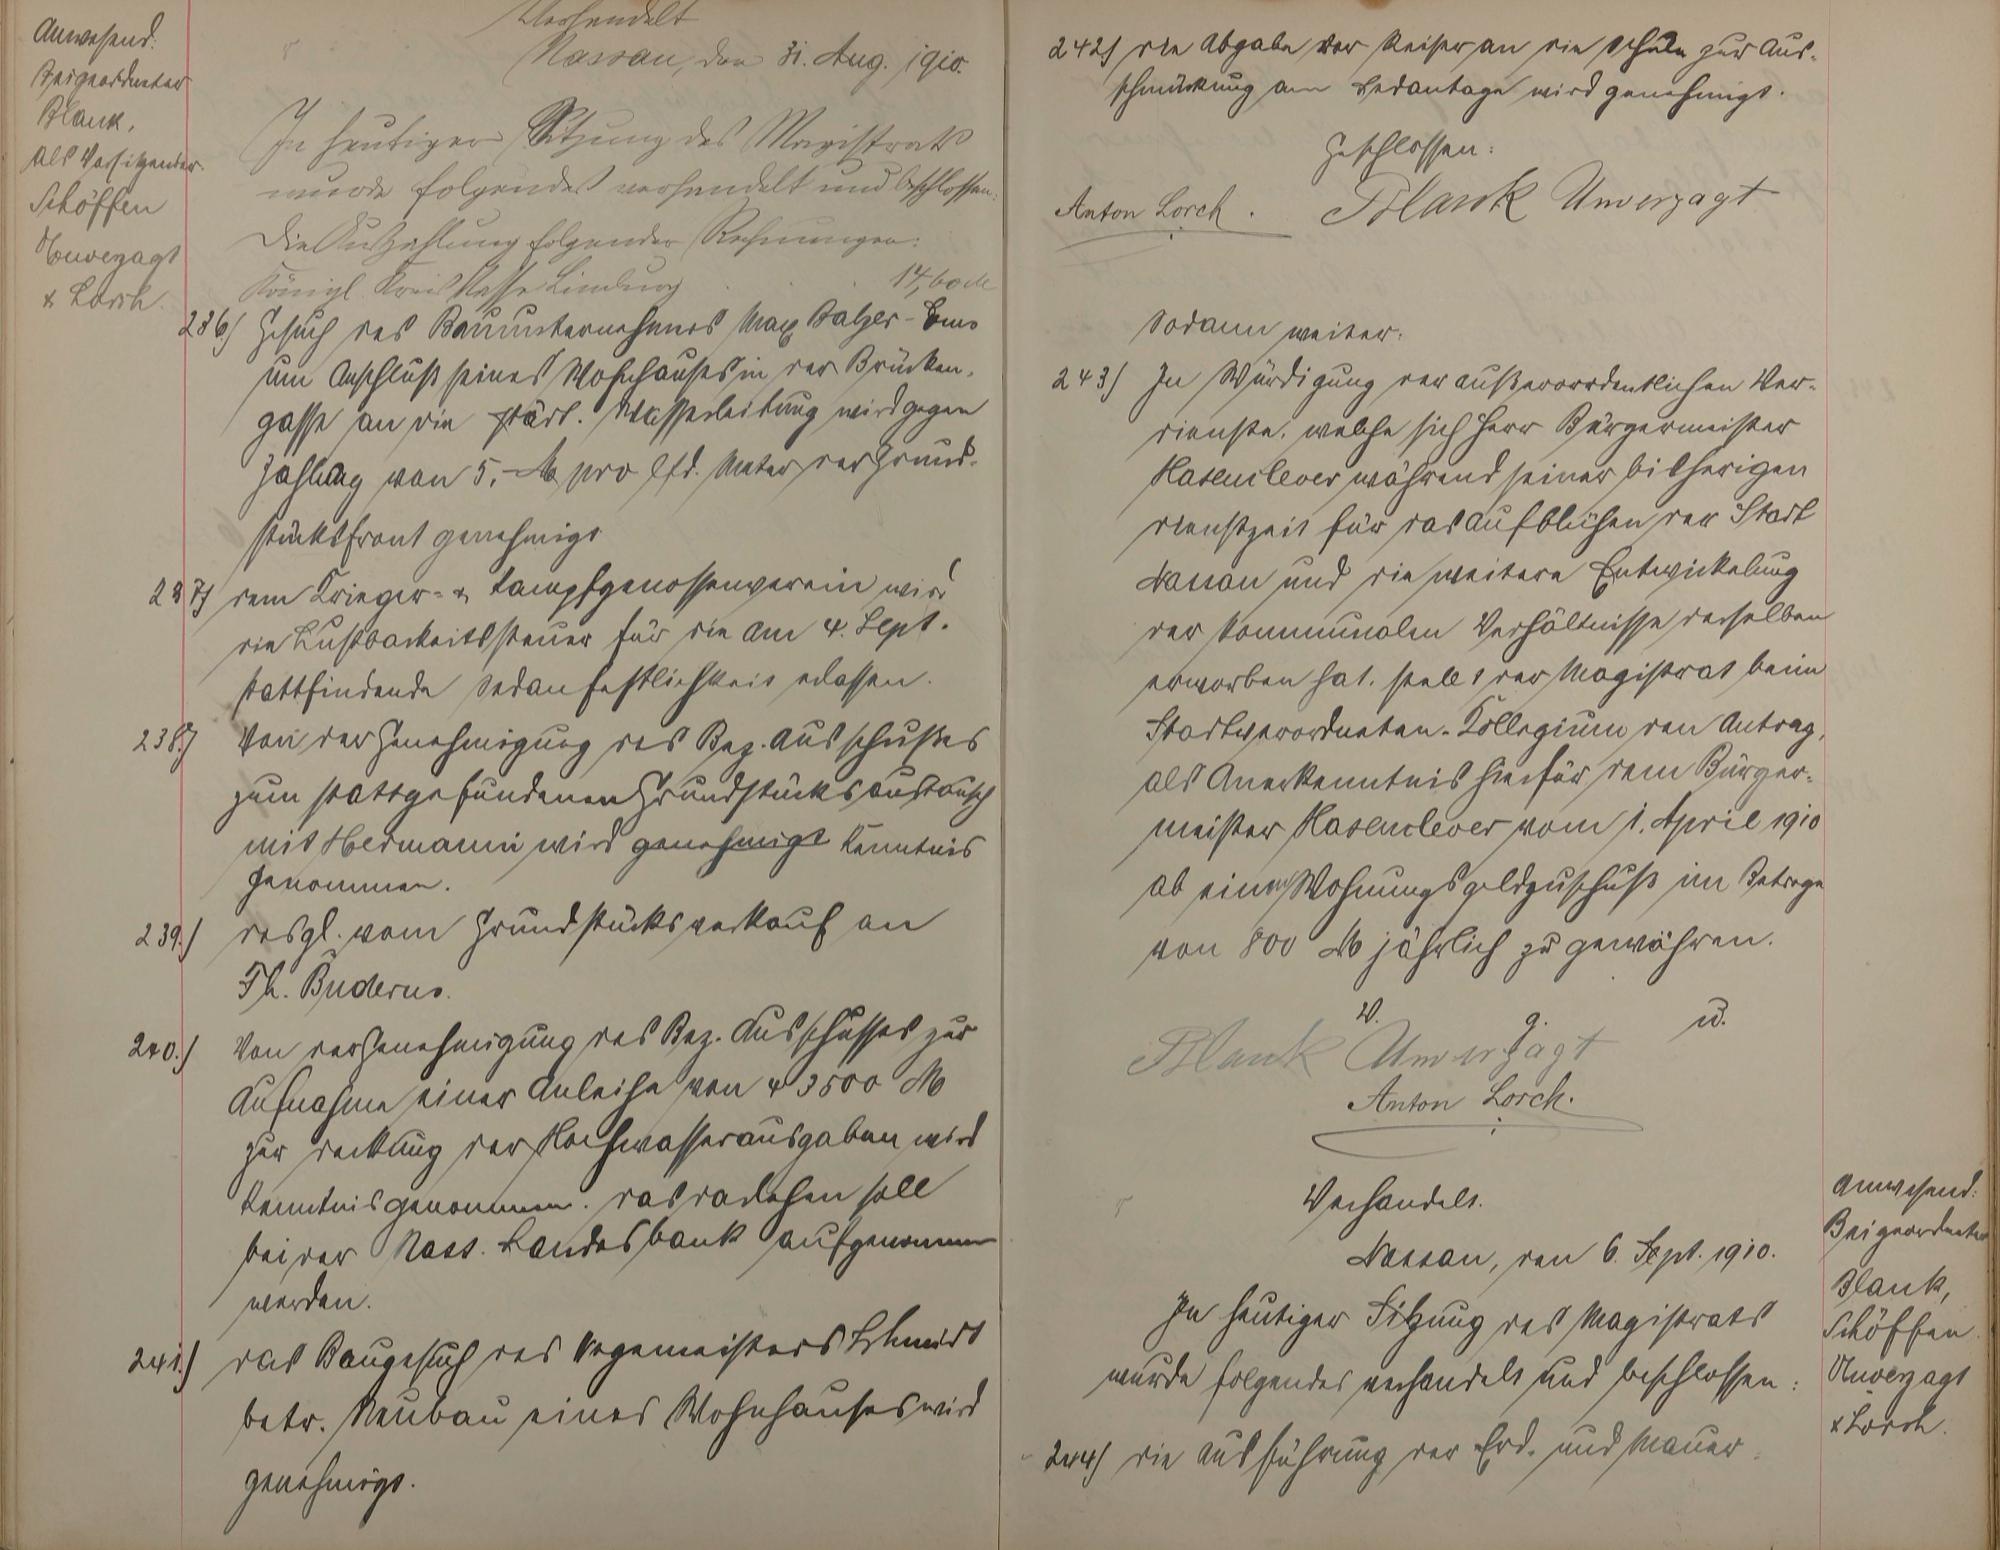 Anwesend:
Beigeordneter
Blank,
als Vorsitzender.
Schöffen
Unverzagt
& Lorch.
Verhandelt
Nassau, den 31. Aug. 1910.
In heutiger Sitzung des Magistrats
wurde folgendes verhandelt und beschlossen:
Die Auszahlung folgender Rechnungen:
Königl. Kreiskasse Limburg 14,60 M
236) Gesuch des Bauunternehmers Max Balzer-Ems
um Anschluß seines Wohnhauses in der Brücken-
gasse an die städt. Wasserleitung wird gegen
Zahlung von 5,- M pro lfd. Meter der Grund-
stücksfront genehmigt
237) Dem Krieger- & Kampfgenossenverein wird
die Lustbarkeitssteuer für die am 4. Sept.
stattfindende Sedanfestlichkeit erlassen.
238.) Von der Genehmigung des Bez. Ausschußes
zum stattgefundenen Grundstücksaustausch
mit Hermann wird genehmigt Kenntnis
genommen.
239.) Desgl. vom Grundstücksverkauf an
Th. Buderus.
240.) Von der Genehmigung des Bez. Ausschusses zur
Aufnahme einer Anleihe von 43500 M
zur Deckung der Hochwasserausgaben wird
Kenntnis genommen. Das Darlehen soll
bei der Nass. Landesbank aufgenommen
werden.
241.) Das Baugesuch des Wegemeisters Schmidt
betr. Neubau eines Wohnhauses wird
genehmigt.
242) Die Abgabe der Reiser an die Schule zur Aus-
schmückung am Sedantage wird genehmigt.
Geschlossen:
Anton Lorch. Blank Unverzagt
Sodann weiter:
243) In Würdigung der außerordentlichen Ver-
dienste, welche sich Herr Bürgermeister
Hasenclever während seiner bisherigen
Dienstzeit für das Aufblühen der Stadt
Nassau und die weitere Entwickelung
der kommunalen Verhältnisse derselben
erworben hat, stellt der Magistrat beim
Stadtverordneten-Kollegium den Antrag,
als Anerkenntnis hierfür dem Bürger-
meister Hasenclever vom 1. April 1910
ab einen Wohnungsgeldzuschuß im Betrage
von 800 M jährlich zu gewähren.
V. g. u.
Blank Unverzagt
Anton Lorch.
Verhandelt.
Nassau, den 6. Sept. 1910.
In heutiger Sitzung des Magistrats
wurde folgendes verhandelt und beschlossen:
244) Die Ausführung der Erd- und Mauer-
Anwesend:
Beigeordneter
Blank,
Schöffen
Unverzagt
& Lorch.